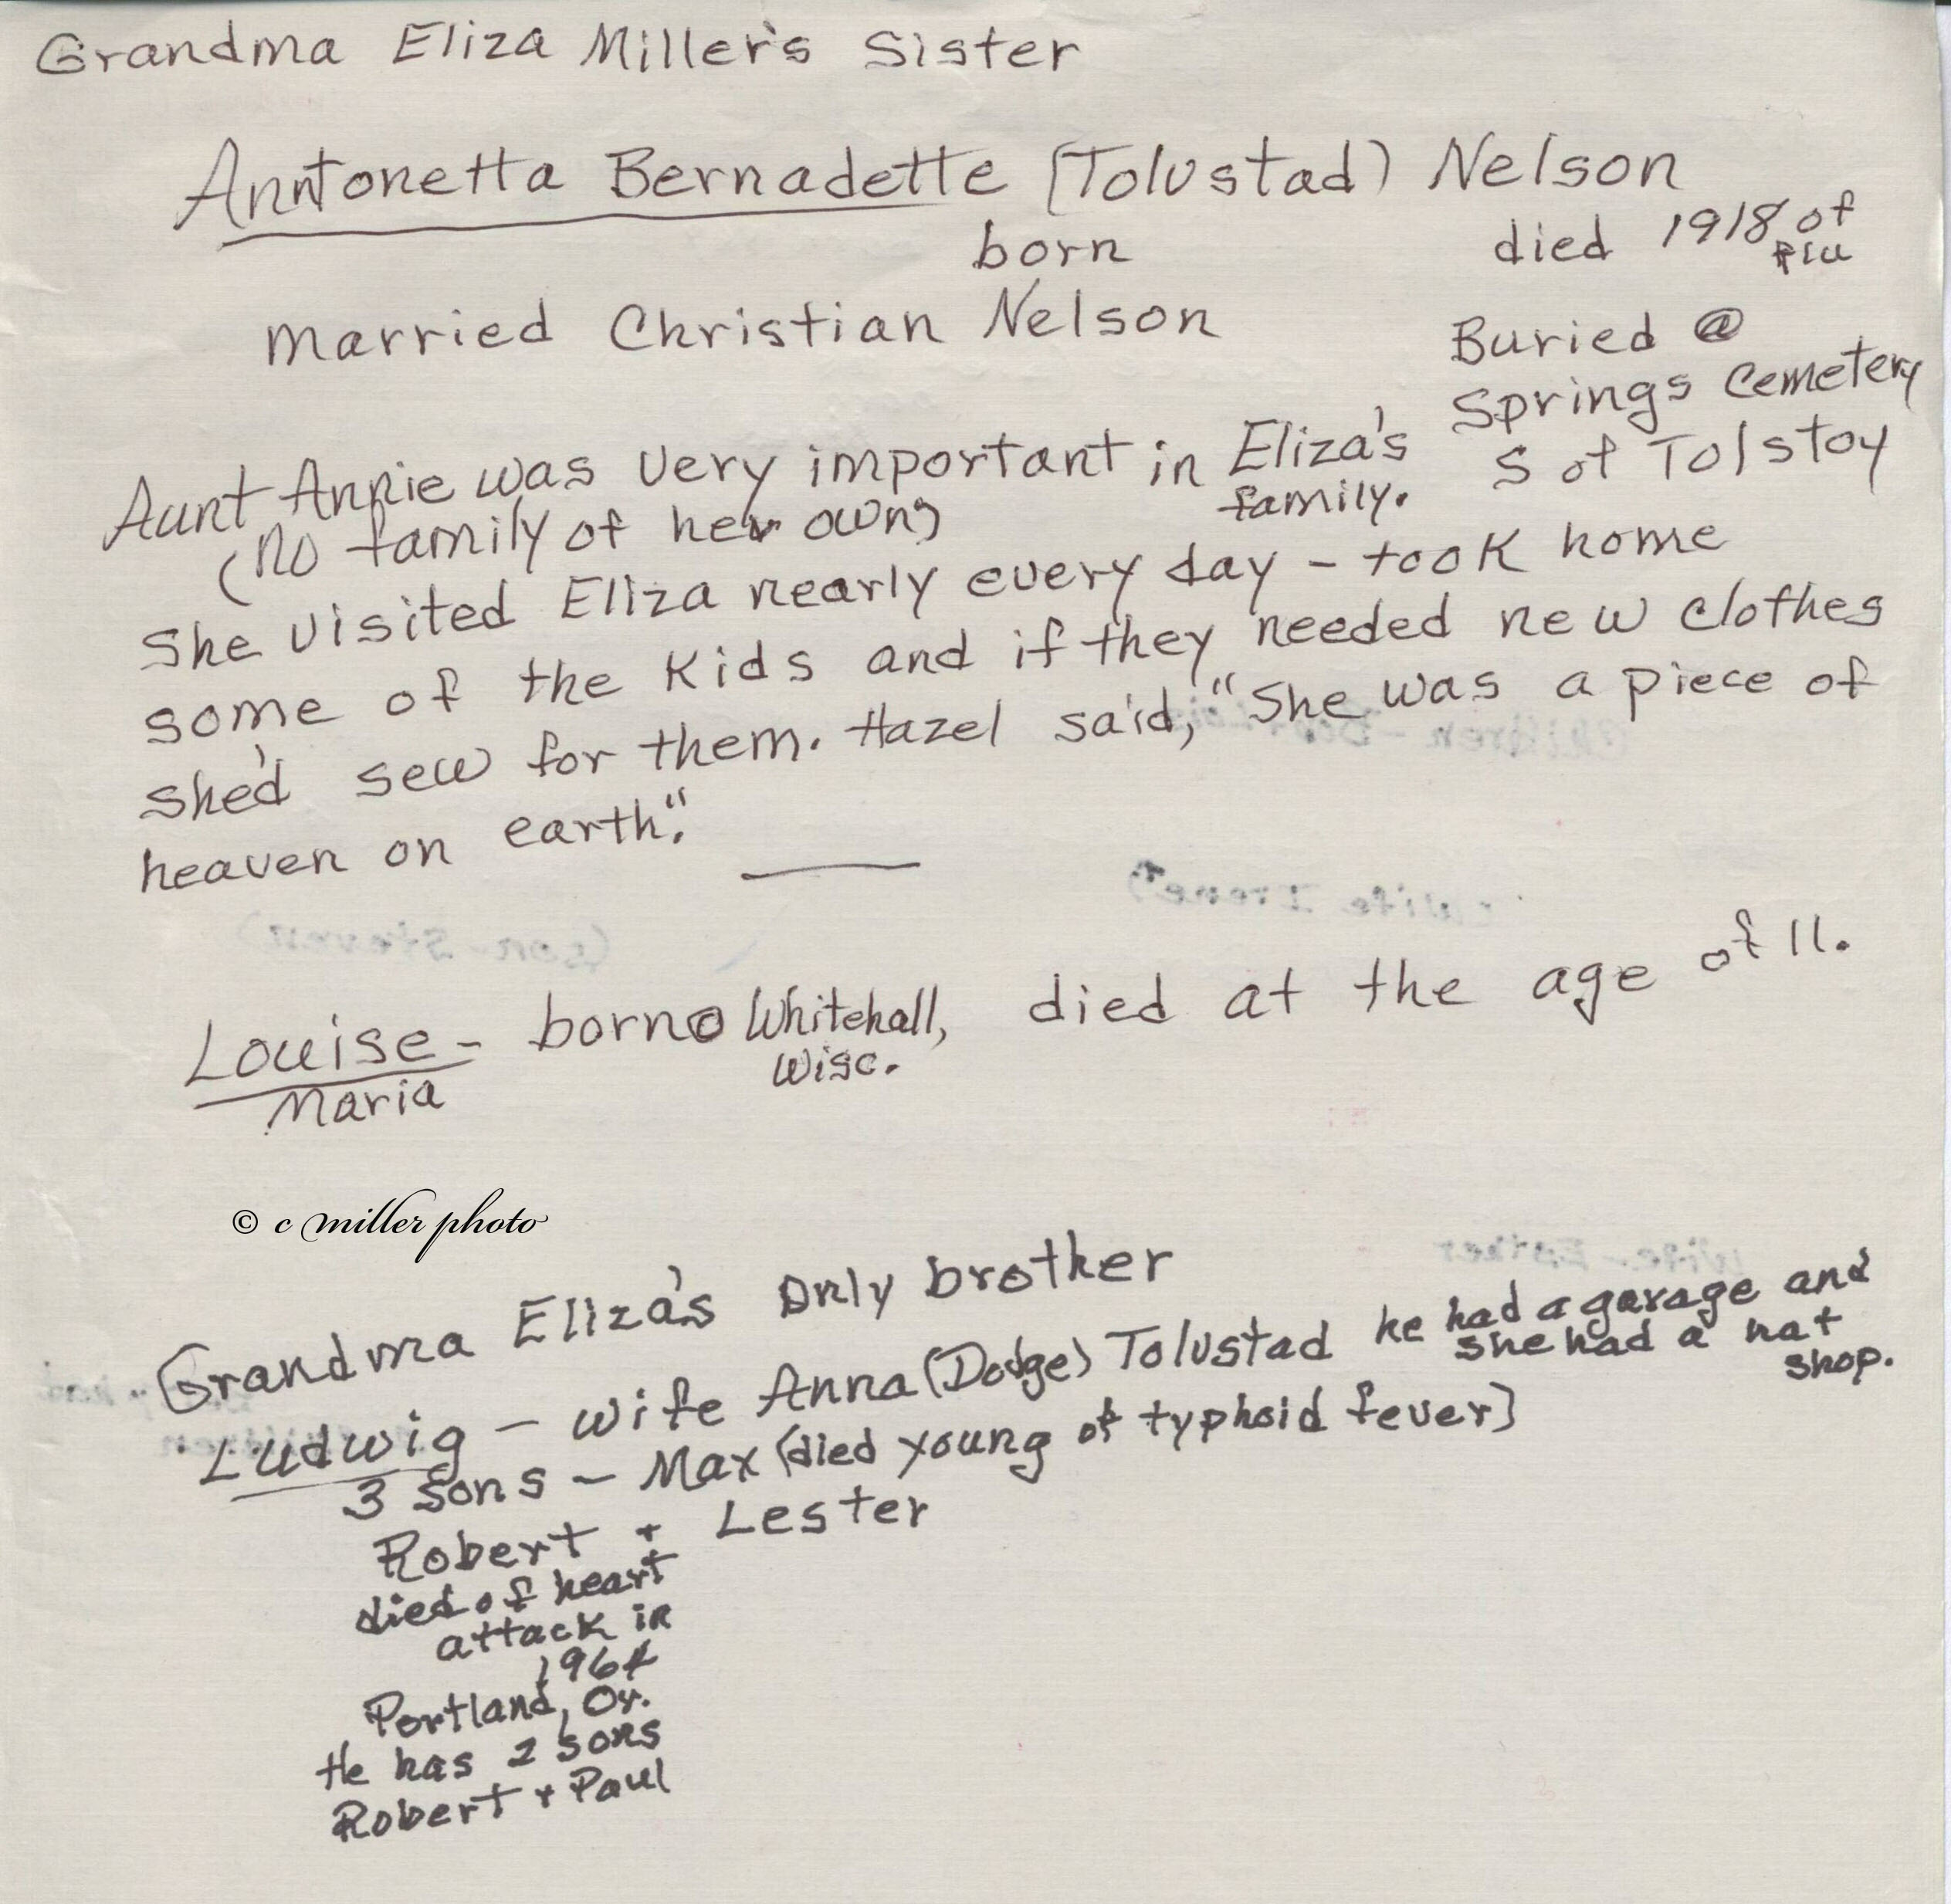 Grandma Eliza Miller's Sister
Anntonetta Bernadette (Tolvstad) Nelson
born
died 1918 of
flu
Married Christian Nelson
Buried @
Springs Cemetery
S of Tolstoy
Aunt Annie was very important in Eliza's
family.
(no family of her own)
She visited Eliza nearly every day - took home
some of the kids and if they needed new clothes
she'd sew for them. Hazel said, "She was a piece of
heaven on earth."
Louise - born @ Whitehall, died at the age of 11.
Wisc.
Maria
© c miller photo
Grandma Eliza's only brother
Ludwig - wife Anna (Dodge) Tolvstad he had a garage and
she had a hat
shop.
3 sons - Max (died young of typhoid fever)
Robert + Lester
died of heart
attack in
1964
Portland, Or.
He has 2 sons
Robert + Paul